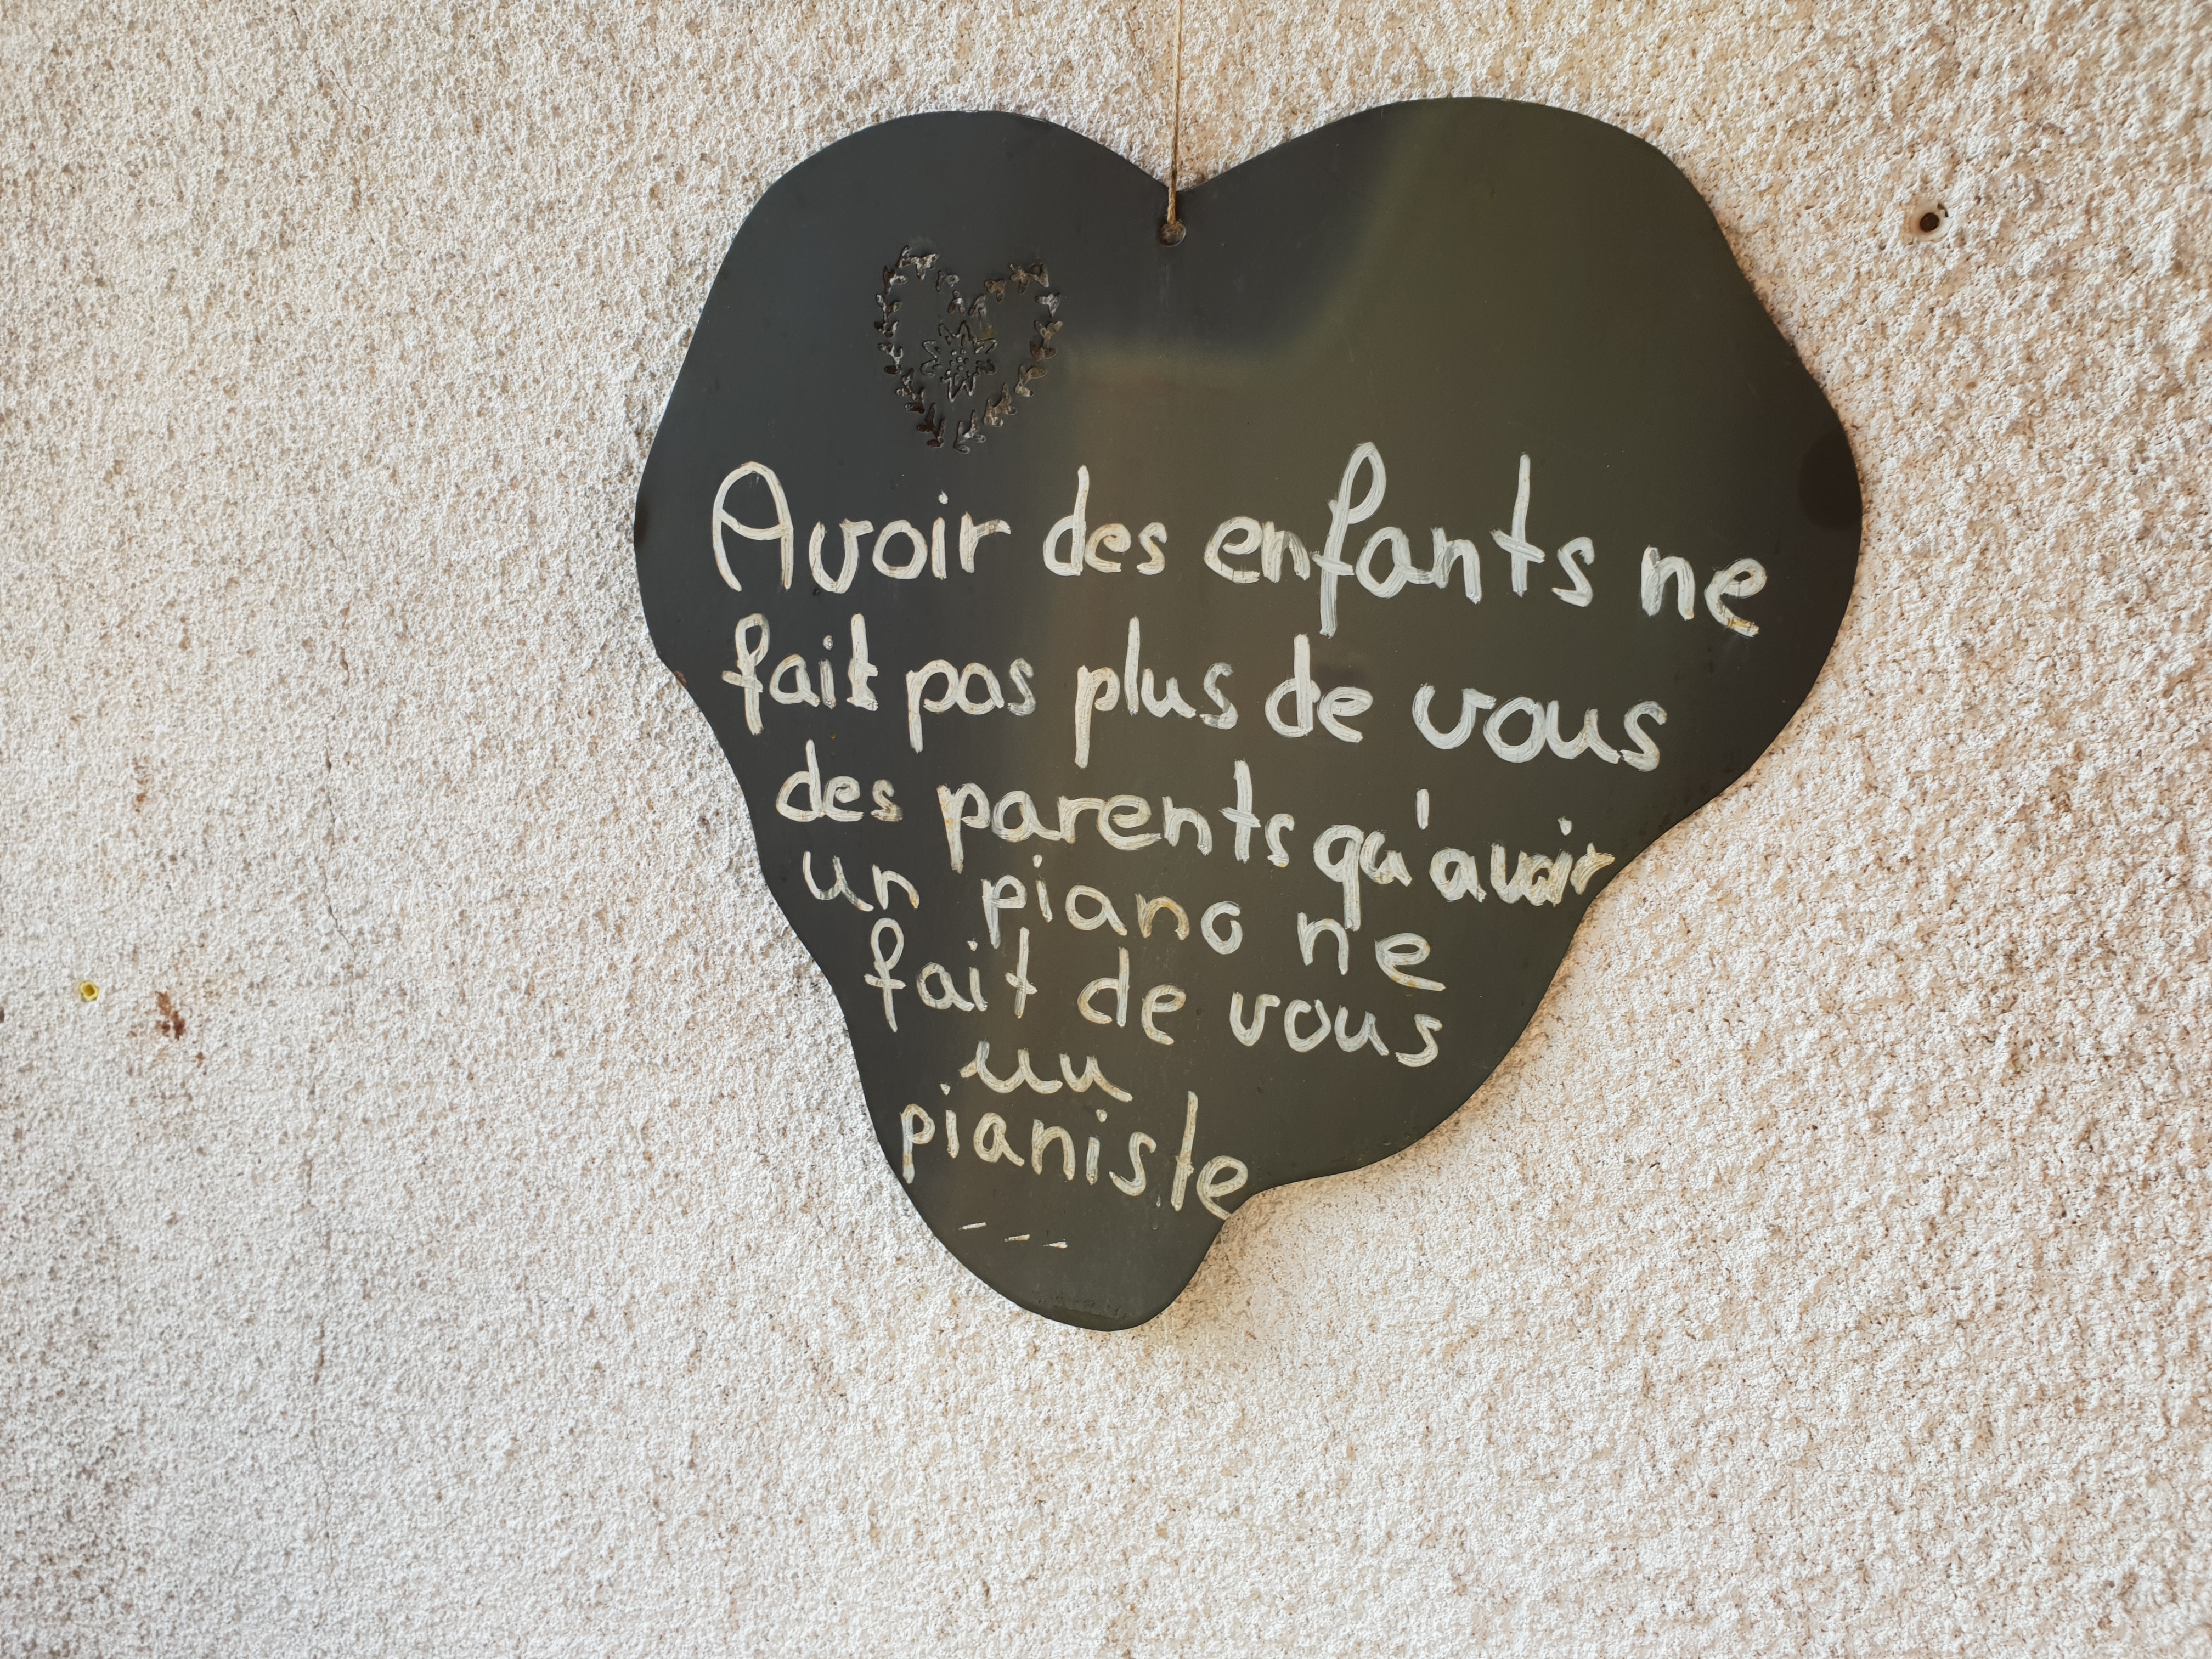 Avoir des enfants ne
fait pas plus de vous
des parents qu'avoir
un piano ne
fait de vous
un
pianiste
---